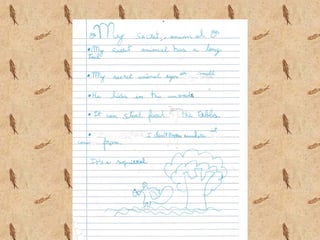 My secret animal
My secret animal has a long
tail
My secret animal eyes small
He hide in the woods
It can steal from the tables
I don't know number
come from
It's a squirrel